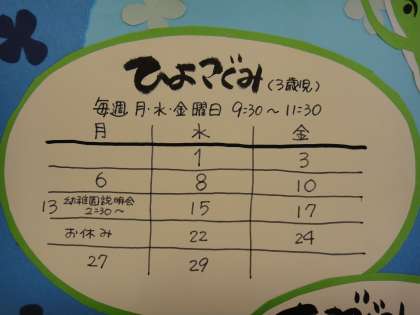 ひよこぐみ (3歳児)
毎週 月・水・金曜日 9:30～11:30
月 水 金
1 3
6 8 10
13 幼稚園説明会 2:30～ 15 17
お休み 22 24
27 29